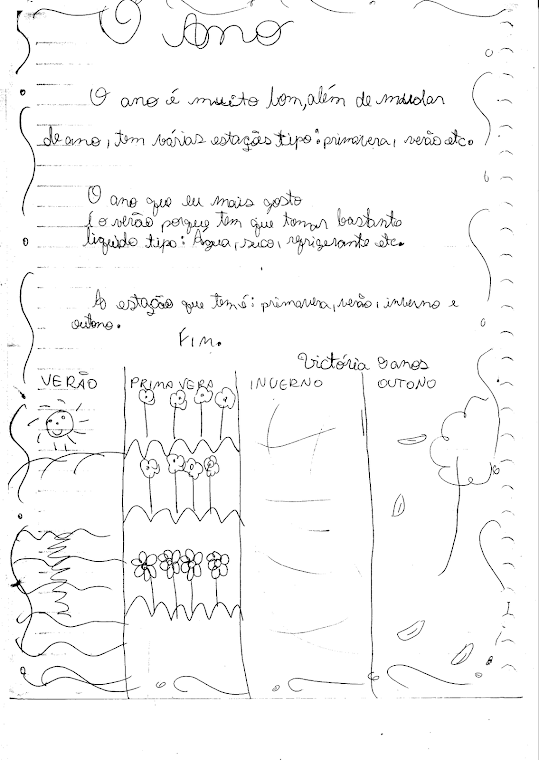 O Ano
O ano é muito bom, além de mudar
de ano, tem várias estações tipo: primavera, verão etc.
O ano que eu mais gosto
é o verão porque tem que tomar bastante
líquido tipo: Água, suco, refrigerante etc.
As estação que tem é: primavera, verão, inverno e
outono.
Fim.
Victória 9 anos
VERÃO PRIMAVERA INVERNO OUTONO